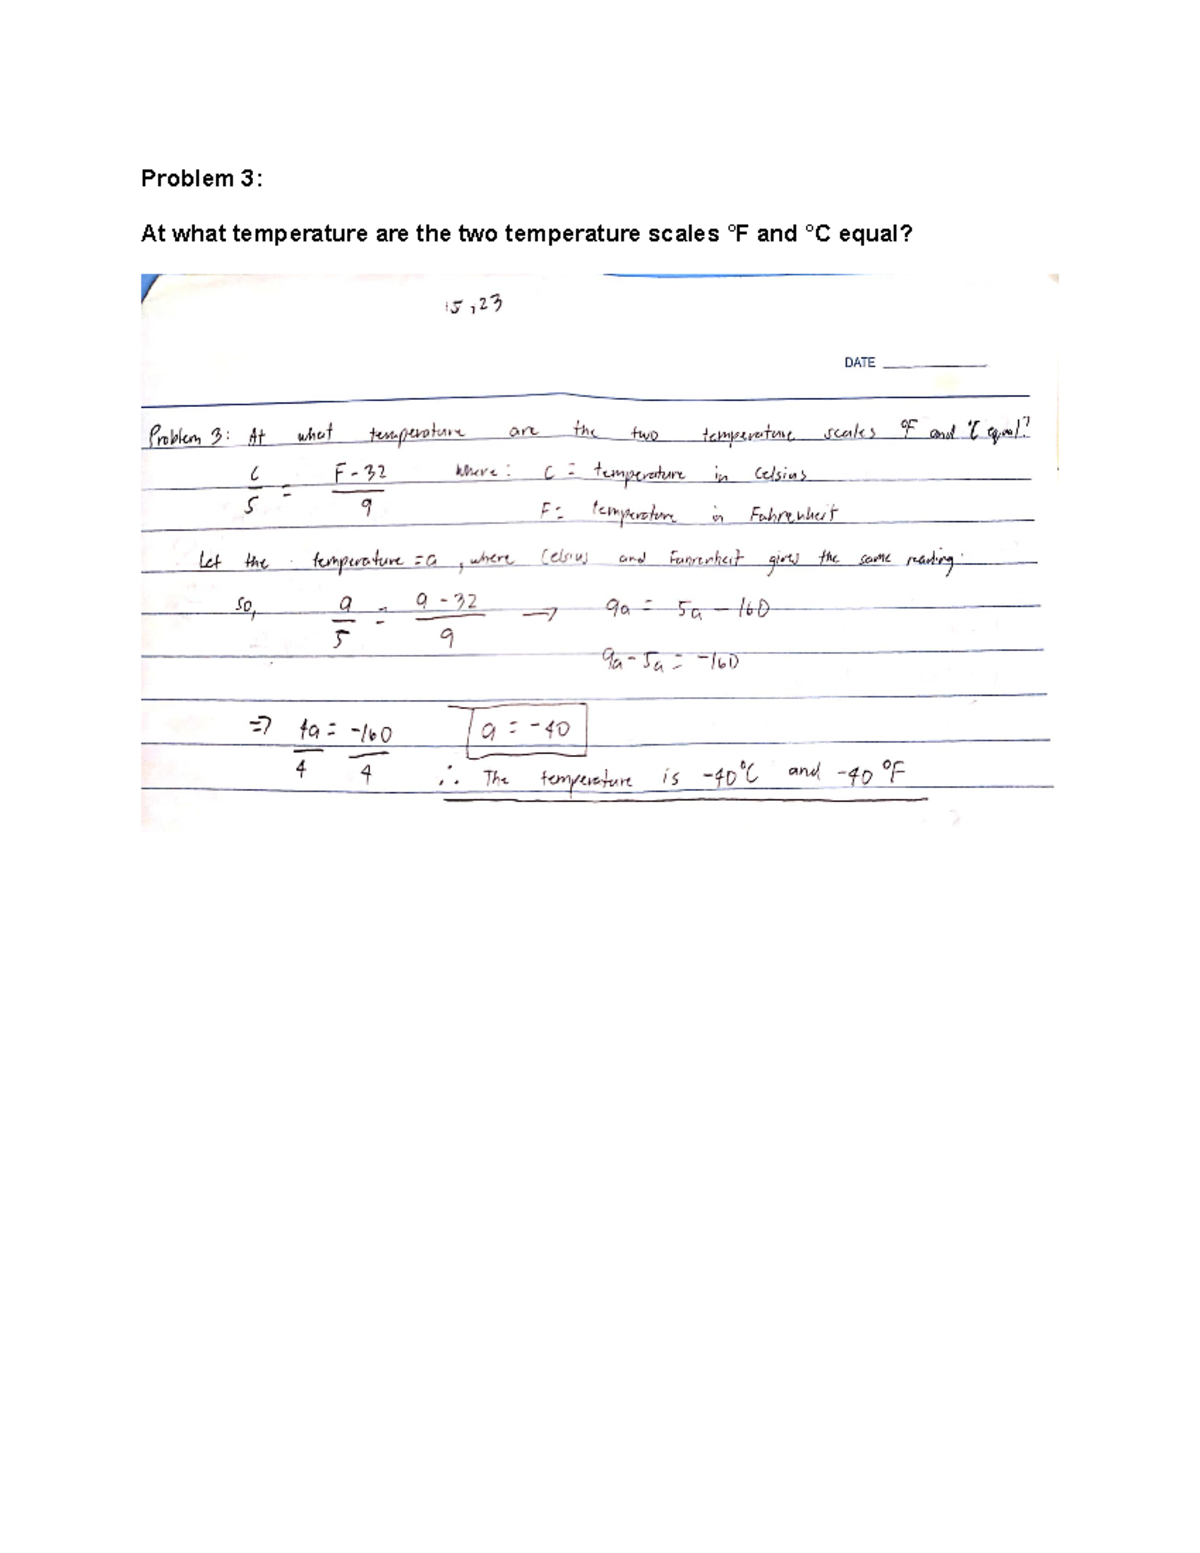 Problem 3:
At what temperature are the two temperature scales °F and °C equal?
15,23
DATE
Problem 3: At what temperature are the two temperature scales °F and °C equal?
C/5 = F-32/9 where: C = temperature in Celsius
F = temperature in Fahrenheit
Let the temperature = a, where Celsius and Fahrenheit gives the same reading.
So, a/5 = a-32/9 → 9a = 5a - 160
9a - 5a = -160
⇒ 4a/4 = -160/4 a = -40
∴ The temperature is -40°C and -40°F